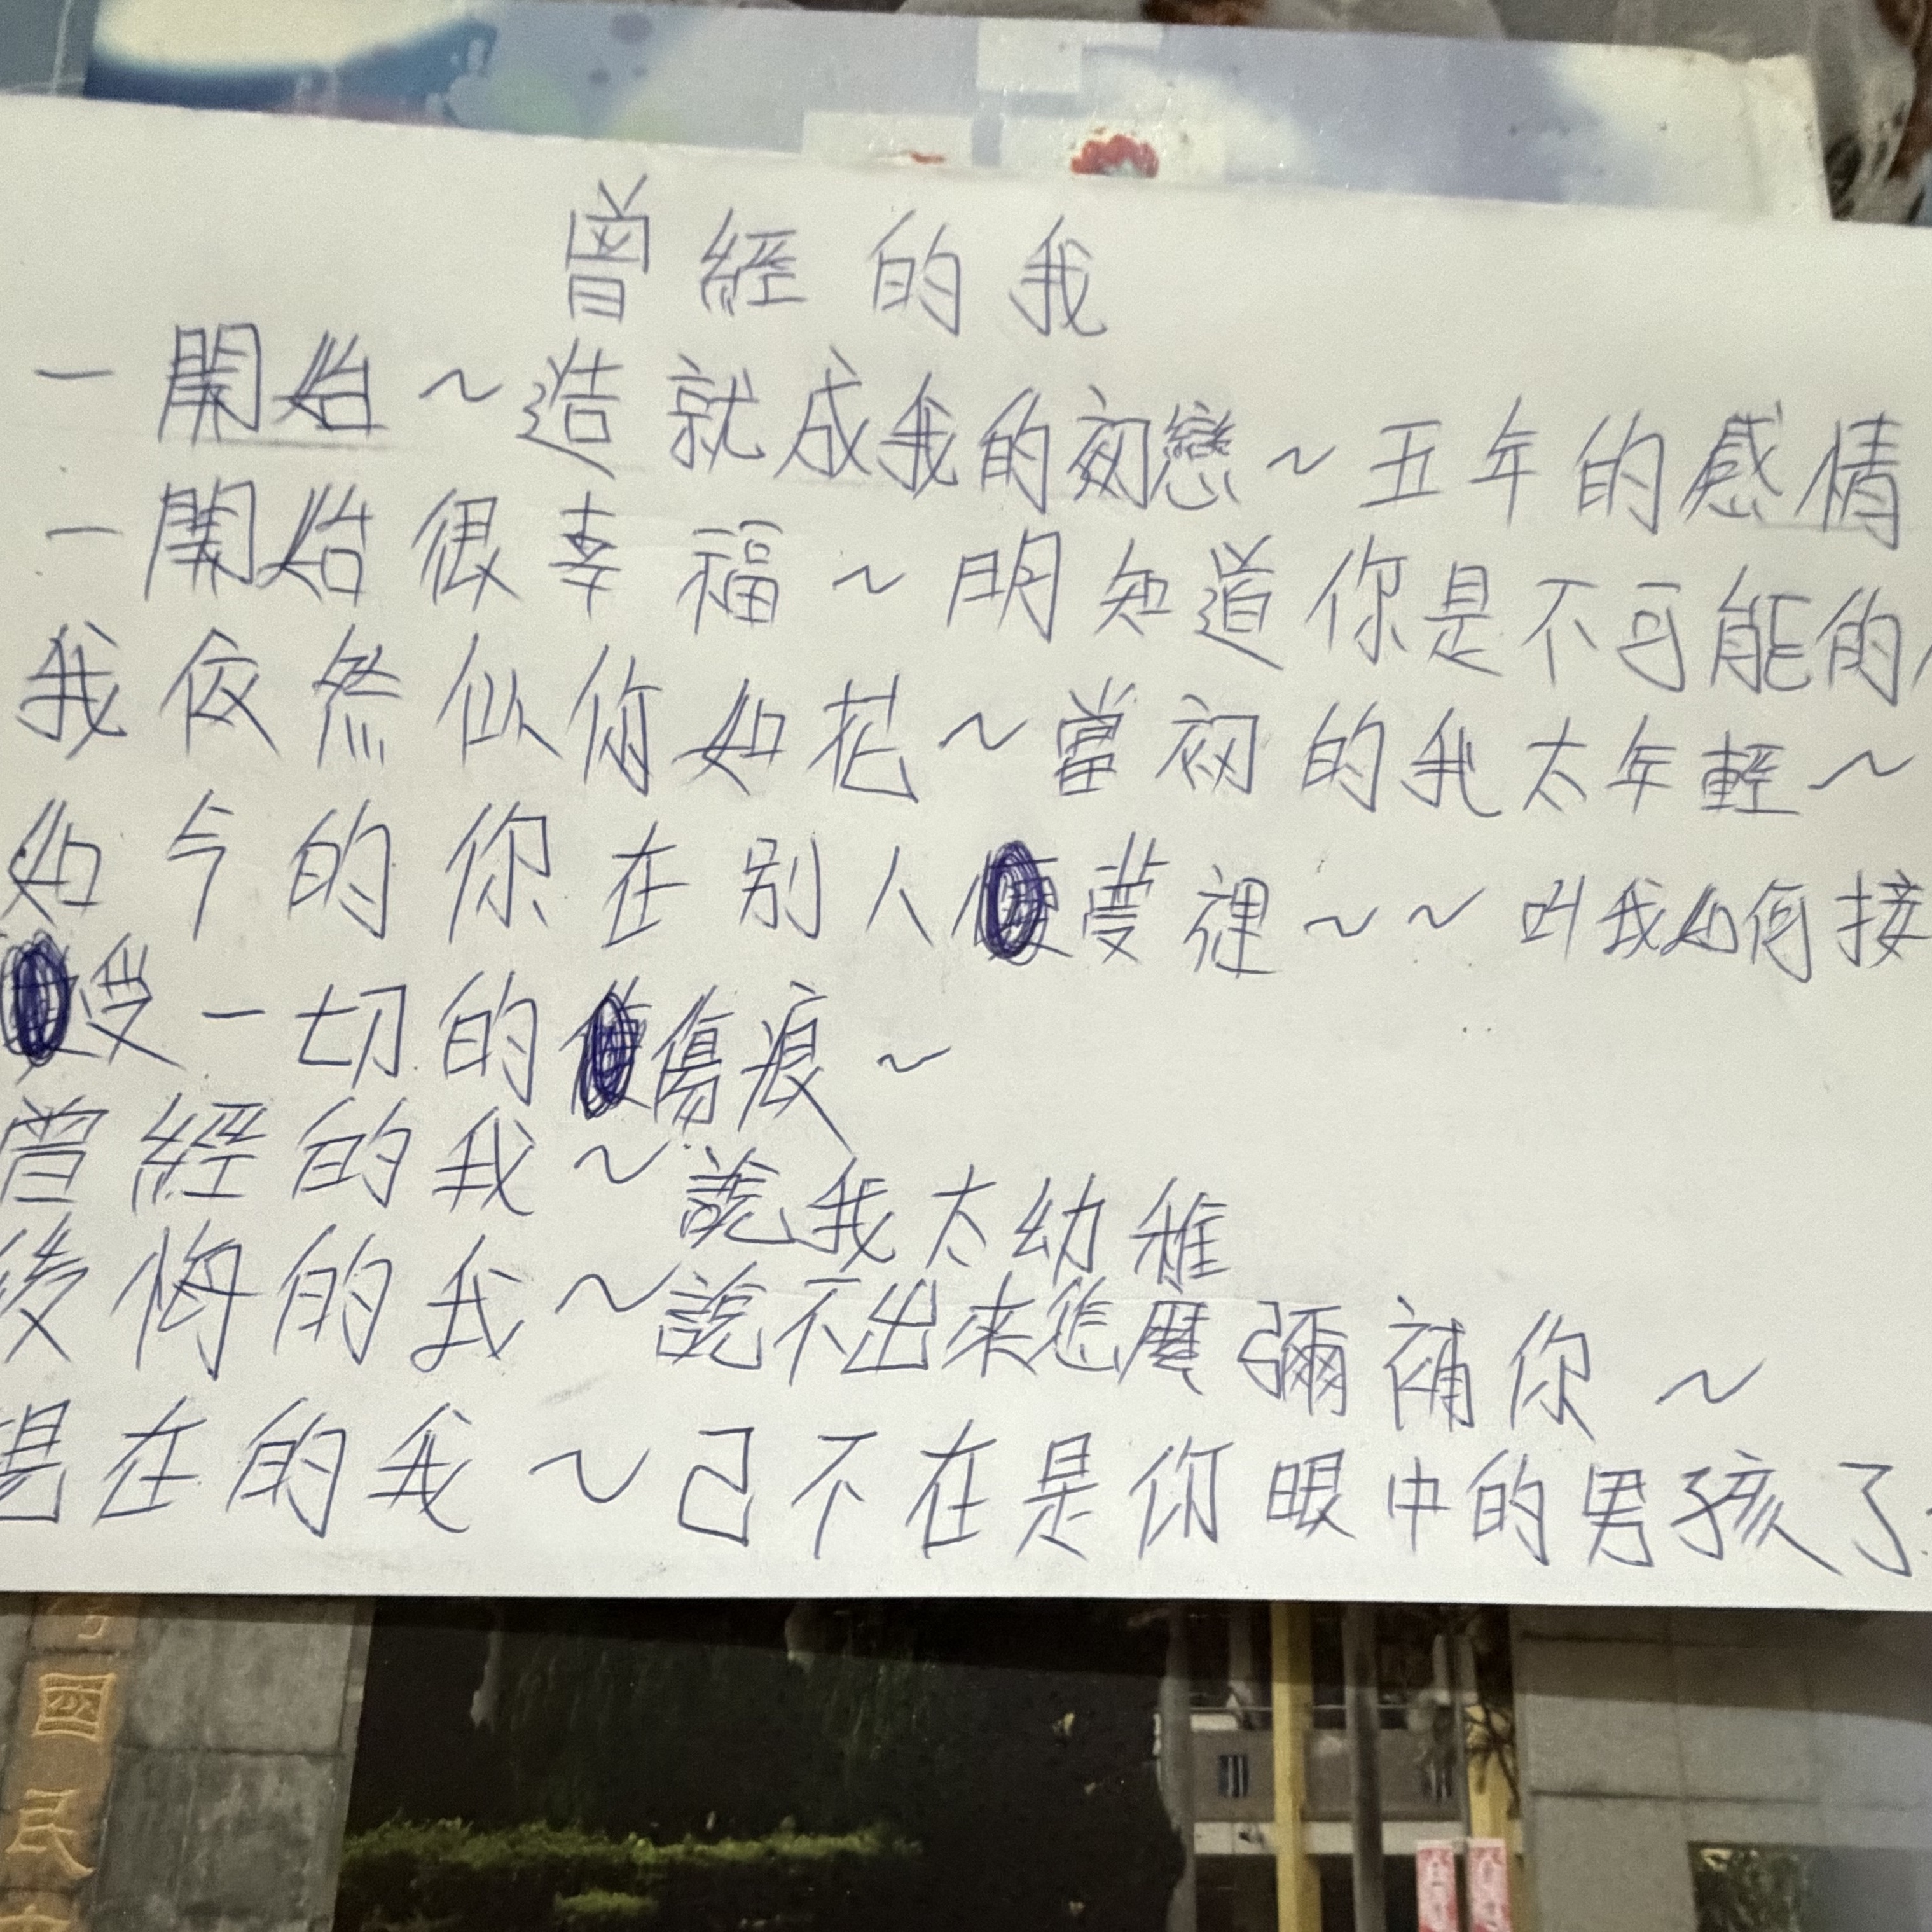 曾經的我
一開始～造就成我的初戀～五年的感情
一開始很幸福～明知道你是不可能的
我依然似你如花～當初的我太年輕～
如今的你在別人夢裡～～叫我如何接
受一切的傷痕～
曾經的我～說我太幼稚
後悔的我～說不出來怎麼彌補你～
現在的我～己不在是你眼中的男孩了
國
民